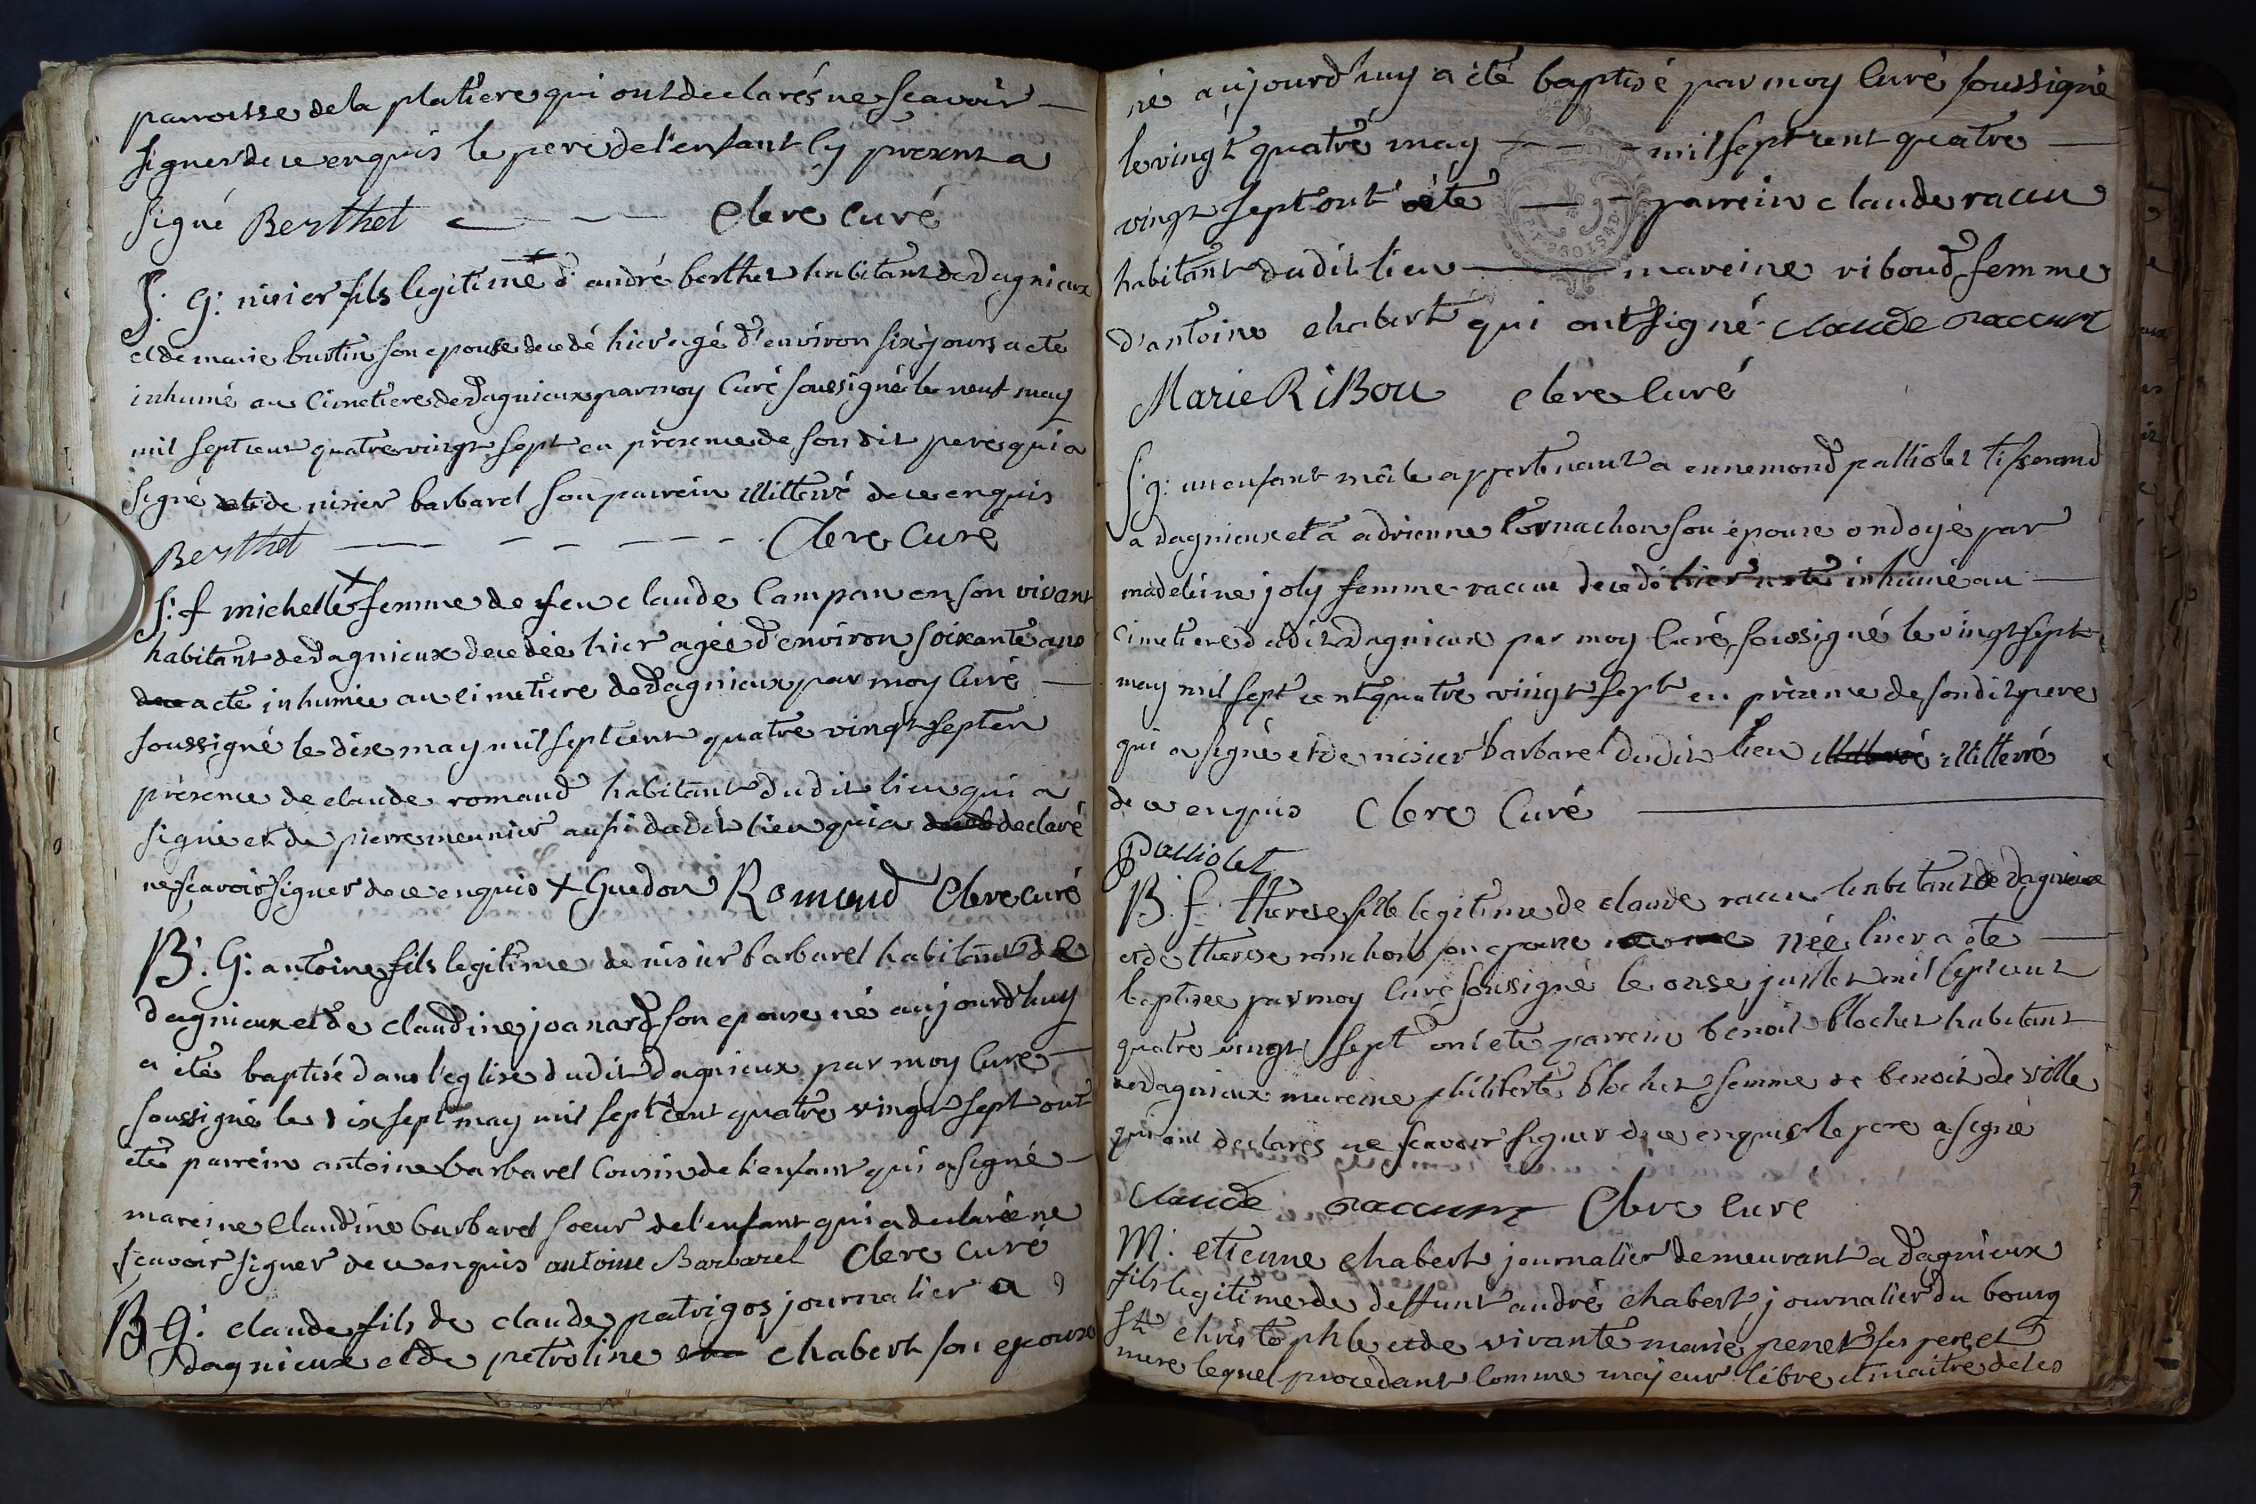 parroisse de la platiere qui ont declarés ne scavoir
signer de ce enquis le pere de l'enfant cy present a
signé Berthet Clere Curé
S: G: nisier fils legitime d'andré berthet habitant de Dagnieux
et de marie burtin son epouse decedé hier agé d'environ six jours a ete
inhumé au Cimetiere de Dagnieux par moy Curé soussigné le neuf may
mil sept cent quatre vingt sept en présence de son dit pere qui a
signé et de nisier barbarel son parrein illitterré de ce enquis
Berthet Clere Curé
S: f michelle + femme de feu claude Campan en son vivant
habitant de Dagnieux decedée hier agée d'environ soixante ans
a ete inhumée au cimetiere de Dagnieux par moy Curé
soussigné le dix may mil sept cent quatre vingt sept en
présence de claude romand habitant dudit lieu qui a
signé et de pierre meunier aussi dudit lieu qui a declaré
ne scavoir signer de ce enquis + Guedon Romand Clere curé
B: G: antoine fils legitime de nisier barbarel habitant de
dagnieux et de claudine joanard son epouse né aujourd'huy
a été baptisé dans l'eglise dudit dagnieux par moy Curé
soussigné le dix sept may mil sept cent quatre vingt sept ont
eté parrein antoine barbarel Cousin de l'enfant qui a signé
mareine Claudine barbarel soeur de l'enfant qui a declarée ne
scavoir signer de ce enquis antoine Barbarel Clere curé
B G: claude fils de claude patrigos journalier a
dagnieux et de petroline chabert son epouse
né aujourd'huy a eté baptisé par moy Curé soussigné
le vingt quatre may mil sept cent quatre
vingt sept ont eté parrein claude racui
habitant dudit lieu mareine riboud femme
d'antoine chabert qui ont signé claude raccurt
Marie RiBou Clere Curé
S: g: un enfant mâle appartenant a ennemond palliolet tisserand
a dagnieux et a adrienne Cornachon son épouse ondoyé par
madeleine joly femme racui decedé hier a ete inhumé au
Cimetiere dudit Dagnieux par moy Curé soussigné le vingt sept
may mil sept cent quatre vingt sept en présence de son dit pere
qui a signé et de nisier barbarel dudit lieu illitterré
de ce enquis Clere Curé
Palliolet
B. f: therese fille legitime de claude racui habitant de dagnieux
et de therese ranchon son epouse née hier a ete
baptisée par moy Curé soussigné le onse juillet mil sept cent
quatre vingt sept ont ete parrein benoit blochet habitant
de dagnieux mareine philiberte blochet femme de benoit deville
qui ont declarés ne scavoir signer de ce enquis le pere a signé
claude raccurt Clere curé
M: etienne chabert journalier demeurant a dagnieux
fils legitime de deffunt andré chabert journalier du bourg
St christophle et de vivante marie penet ses pere et
mere lequel procedant Comme majeur libre et maitre de ses